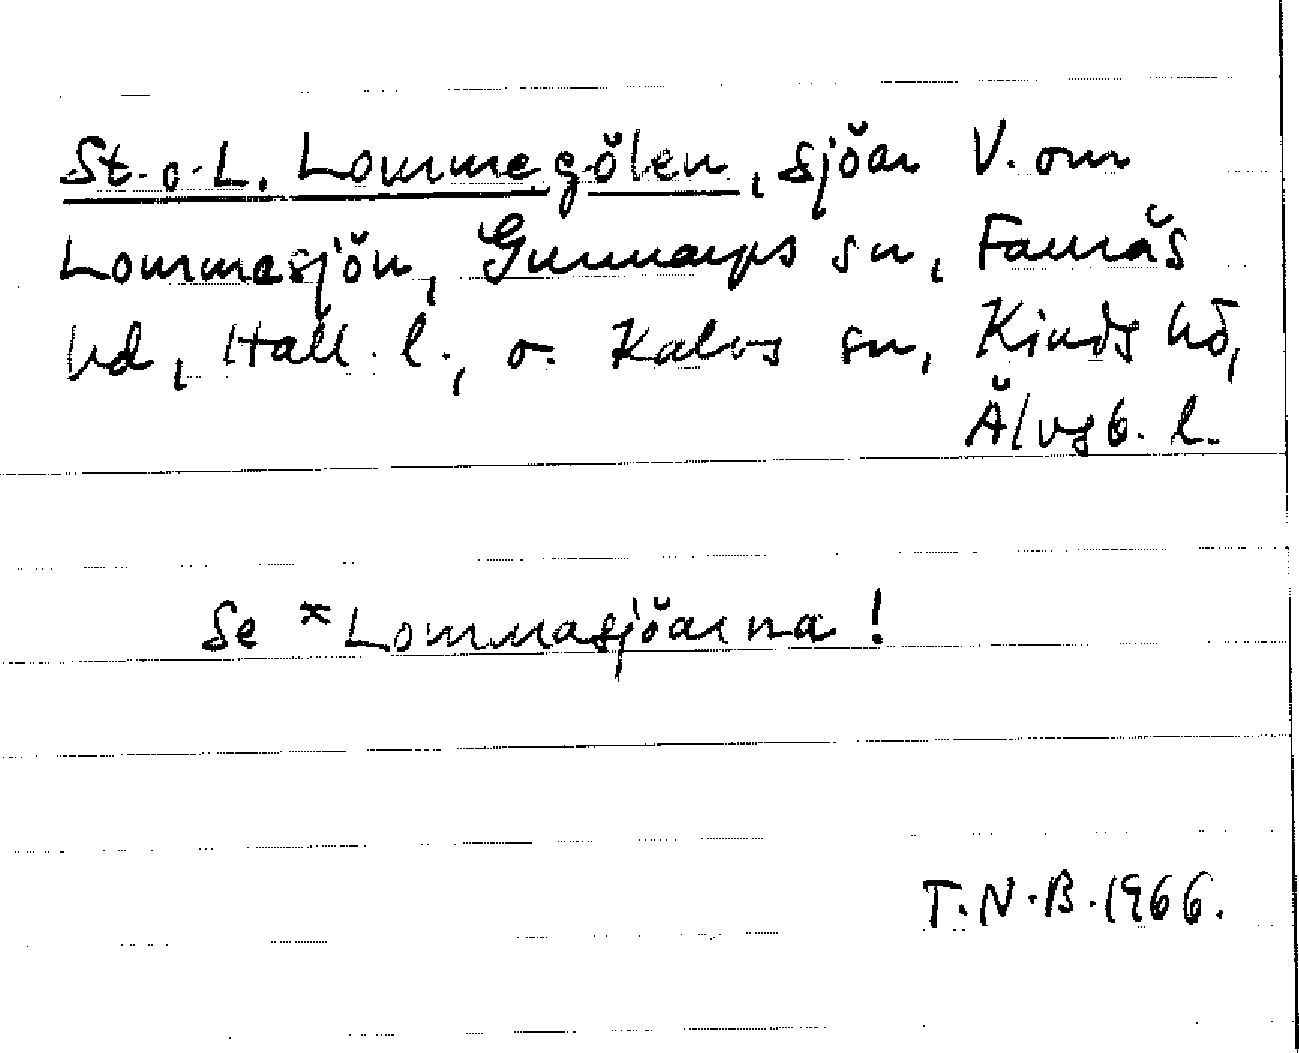 St. o. L. Lommegölen, sjöar V. om
Lommesjön, Gunnarps sn, Faurås
hd, Hall. l., o. Kalvs sn, Kinds hd,
Älvsb. l.
Se *Lommasjöarna!
T.N.B. 1966.